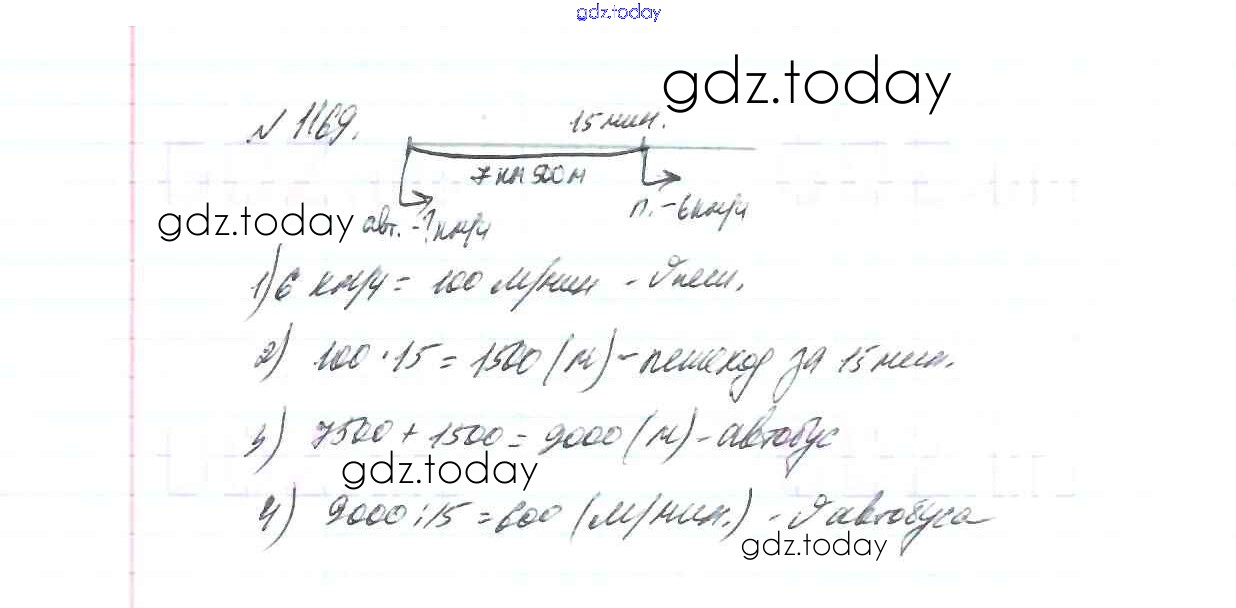 gdz.today
gdz.today
№ 1169.
15 мин.
7 км 500 м
п. - 6 км/ч
gdz.today
авт. - ? км/ч
1) 6 км/ч = 100 м/мин - υ пеш.
2) 100 · 15 = 1500 (м) - пешеход за 15 мин.
3) 7500 + 1500 = 9000 (м) - автобус
gdz.today
4) 9000 : 15 = 600 (м/мин.) - υ автобуса
gdz.today